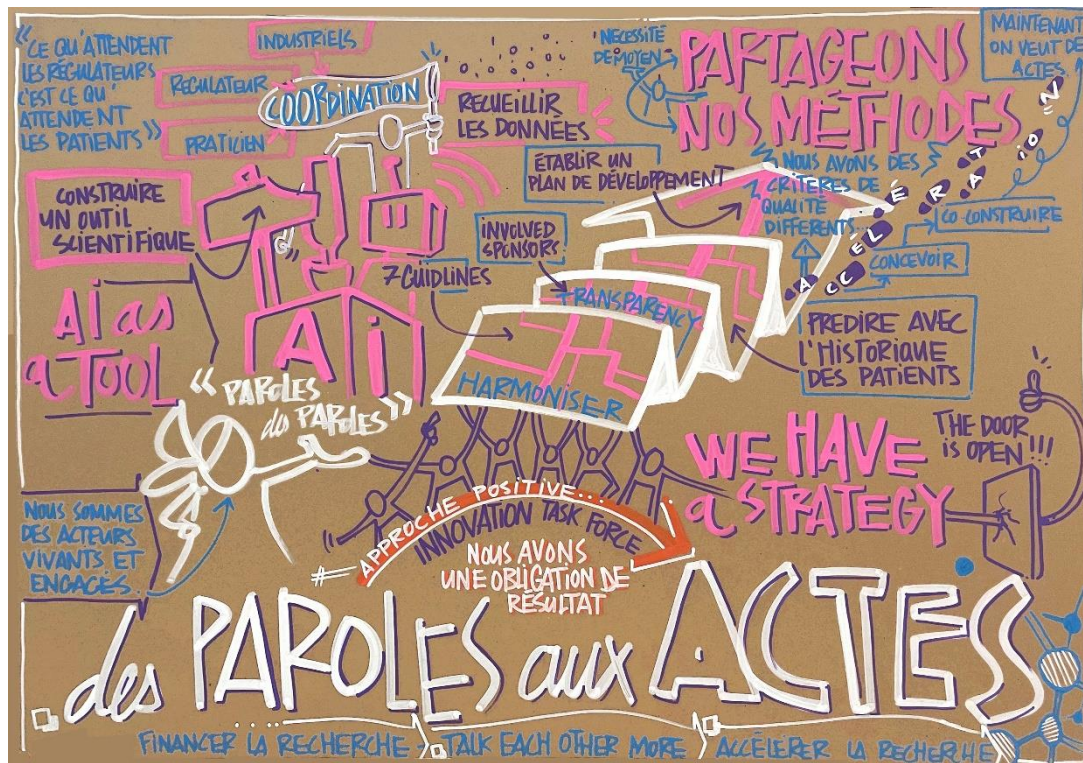 "CE QU'ATTENDENT
LES RÉGULATEURS
C'EST CE QU'
ATTENDENT
LES PATIENTS"
INDUSTRIELS
REGULATEUR
PRATICIEN
COORDINATION
RECUEILLIR
LES DONNÉES
NECESSITÉ
DE MOYEN
PARTAGEONS
NOS MÉTHODES
MAINTENANT
ON VEUT DE
ACTES.
CONSTRUIRE
UN OUTIL
SCIENTIFIQUE
ÉTABLIR UN
PLAN DE DÉVELOPPEMENT
NOUS AVONS DES
CRITÈRES DE
QUALITÉ
DIFFERENTS...
ACCELÉRATION
CO-CONSTRUIRE
CONCEVOIR
INVOLVED
SPONSORS
7 GUIDLINES
TRANSPARENCY
HARMONISER
PREDIRE AVEC
L'HISTORIQUE
DES PATIENTS
Ai as
a TOOL
Ai
"PAROLES
des PAROLES"
WE HAVE
a STRATEGY
THE DOOR
is OPEN!!!
NOUS SOMMES
DES ACTEURS
VIVANTS ET
ENGAGÉS.
APPROCHE POSITIVE...
INNOVATION TASK FORCE
NOUS AVONS
UNE OBLIGATION DE
RÉSULTAT
des PAROLES aux ACTES
FINANCER LA RECHERCHE TALK EACH OTHER MORE ACCÉLERER LA RECHERCHE